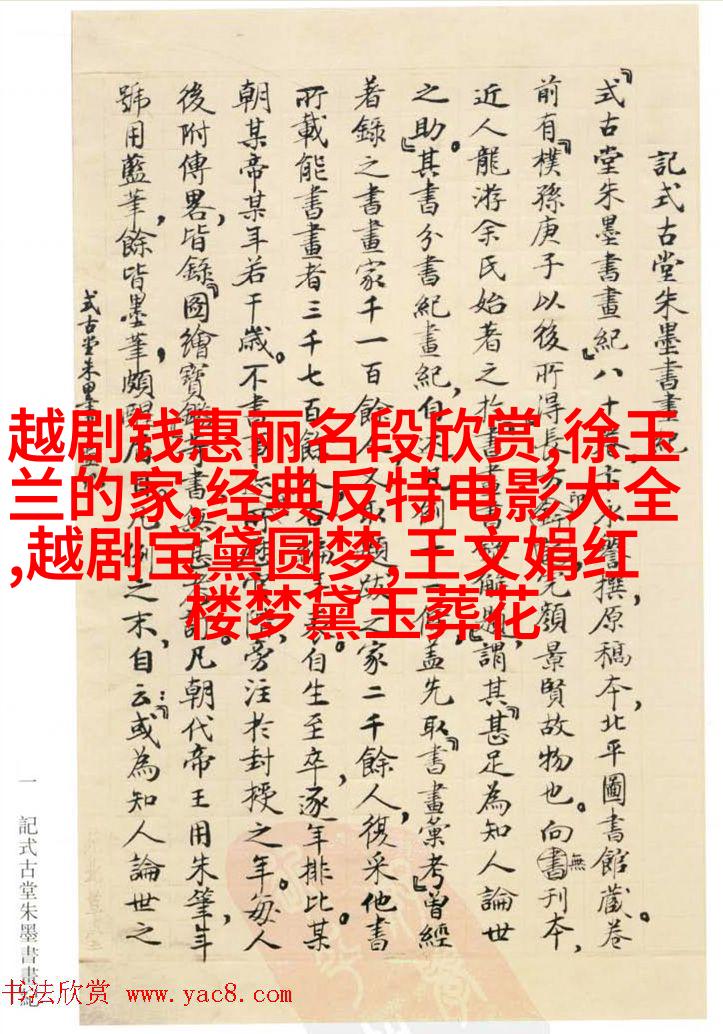 記式古堂朱墨書畫紀
『式古堂朱墨書畫紀』八十永譽撰,原稿本,北平圖書館藏。卷
前有『樸孫庚子以後所得長顏景賢故物也。向無書刊本,
近人龍游余氏始著之於書解題』,謂其『甚足為知人論世
之助』。其書分書紀畫紀,自例十一條,蓋先取『書畫彙考』曾經
著錄之書畫家千一百餘又題跋之家二千餘人,復采他書
所載能書畫者三千七百餘表,自生至卒,逐年排比,某
朝某帝某年若干歲。不書旁注於封授之年。每人
後附傳畧,皆錄『圖繪寶鑑書凡朝代帝王用朱筆,年
號用藍筆,餘皆墨筆,頗例之末,自云:『或為知人論世之
式古堂朱墨書
越剧钱惠丽名段欣赏,徐玉
兰的家,经典反特电影大全
,越剧宝黛圆梦,王文娟红
楼梦黛玉葬花
一
記式古堂朱墨書畫紀
书法欣赏 www.yac8.com